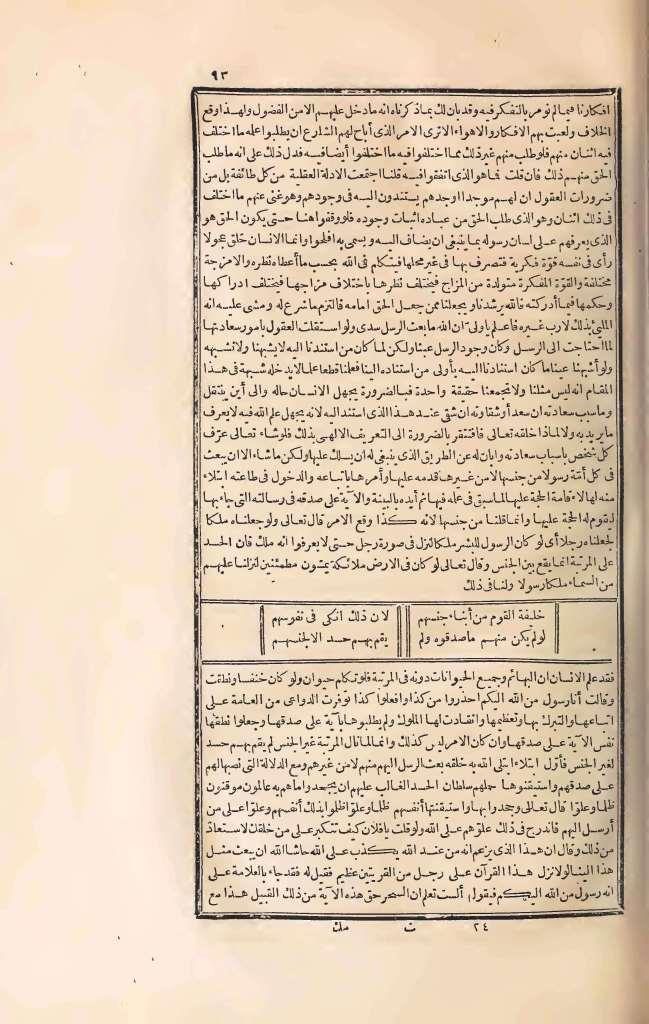 ٩٣
افكارنا فيما لم نؤمر بالتفكر فيه وقد بان لك بما ذكرناه انه ما دخل عليهم الا من الفضول ولهذا وقع
الخلاف ولعبت بهم الافكار والاهواء الا ترى الامر الذى أباح لهم الشارع ان يطلبوا علمه ما اختلف
فيه اثنان منهم فلو طلب منهم غير ذلك مما اختلفوا فيه ما اختلفوا أيضا فيه فدل ذلك على انه ما طلب
الحق منهم ذلك فان قلت فما هو الذى اتفقوا فيه قلنا اجتمعت الادلة العقلية من كل طائفة بل من
ضرورات العقول ان لهم موجدا أوجدهم يستندون اليه فى وجودهم وهو غنى عنهم ما اختلف
فى ذلك اثنان وهو الذى طلب الحق من عباده اثبات وجوده فلو وقفوا هنا حتى يكون الحق هو
الذى يعرفهم على لسان رسوله بما ينبغى ان يضاف اليه ويسمى به افلحوا وانما الانسان خلق عجولا
رأى فى نفسه قوة فكرية فتصرف بها فى غير محلها فيتكلم فى الله بحسب ما أعطاه نظره والامزجة
مختلفة والقوة المفكرة متولدة من المزاج فيختلف نظرها باختلاف مزاجها فيختلف ادراكها
وحكمها فيما أدركته فالله يرشدنا ويجعلنا ممن جعل الحق امامه فالتزم ما شرع له ومشى عليه انه
الملىّ بذلك لا رب غيره فاعلم يا ولىّ ان الله ما بعث الرسل سدى ولو استقلت العقول بأمور سعادتها
لما احتاجت الى الرسل وكان وجود الرسل عبثا ولكن لما كان من استندنا اليه لا يشبهنا ولا نشبهه
ولو أشبهنا عينا ما كان استنادنا اليه بأولى من استناده الينا فعلمنا قطعا علما لا يدخله شبهة فى هذا
المقام انه ليس مثلنا ولا تجمعنا حقيقة واحدة فبالضرورة يجهل الانسان ماله والى أين ينتقل
وما سبب سعادته ان سعد أو شقاوته ان شقى عند هذا الذى استند اليه لانه يجهل علم الله فيه لا يعرف
ما يريد به ولا لماذا خلقه تعالى فافتقر بالضرورة الى التعريف الالهى بذلك فلو شاء تعالى عرّف
كل شخص باسباب سعادته وابان له عن الطريق الذى ينبغى له ان يسلك عليها ولكن ما شاء الا ان يبعث
فى كل أمّة رسولا من جنسها لا من غيرها قدمه عليها وأمرها باتباعه والدخول فى طاعته ابتلاء
منه لها لاقامة الحجة عليها لما سبق فى علمه فيها ثم أيده بالبينة والآية على صدقه فى رسالته التى جاء بها
ليقوم له الحجة عليها وانما قلنا من جنسها لانه كذا وقع الامر قال تعالى ولو جعلناه ملكا
لجعلناه رجلا أى لو كان الرسول للبشر ملكا لنزل فى صورة رجل حتى لا يعرفوا انه ملك فان الحسد
على المرتبة انما يقع بين الجنس وقال تعالى لو كان فى الارض ملائكة يمشون مطمئنين لنزلنا عليهم
من السماء ملكا رسولا ولنا فى ذلك
خليفة القوم من أبناء جنسهم لان ذلك انكى فى نفوسهم
لو لم يكن منهم ما صدقوه ولم يقم بهم حسد الا لجنسهم
فقد علم الانسان ان البهائم وجميع الحيوانات دونه فى المرتبة فلو تكلم حيوان ولو كان خنفسا ونطقت
وقالت أنا رسول من الله اليكم احذروا من كذا وافعلوا كذا لتوفرت الدواعى من العامة على
اتباعها والتبرك بها وتعظيمها وانقادت لها الملوك ولم يطلبوها بآية على صدقها وجعلوا نطقها
نفس الآية على صدقها وان كان الامر ليس كذلك وانما لما نال المرتبة غير الجنس لم يقم بهم حسد
لغير الجنس فأول ابتلاء ابتلى الله به خلقه بعث الرسل اليهم منهم لا من غيرهم ومع الدلالة التى نصبها لهم
على صدقهم واستيقنوها حملهم سلطان الحسد الغالب عليهم ان يجحدوا ما هم به عالمون موقنون
ظلما وعلوّا قال تعالى وجحدوا بها واستيقنتها أنفسهم ظلما وعلوّا ظلموا بذلك أنفسهم وعلوّا على من
أرسل اليهم فاندرج فى ذلك علوّهم على الله ولو قلت يا فلان كيف تتكبر على من خلقك لاستعاذ
من ذلك وقال ان هذا الذى يزعم انه من عند الله يكذب على الله حاشا الله ان يبعث مثل
هذا الينا لولا نزل هذا القرآن على رجل من القريتين عظيم فقيل له فقد جاء بالعلامة على
انه رسول من الله اليكم فيقول ألست تعلم ان السحر حق هذه الآية من ذلك القبيل هذا مع
٢٤ ت ملك